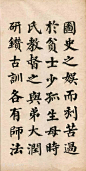 國史之娛而刻苦過
於貧士少孤生母時
氏教督之與弟大潤
研鑽古訓各有師法